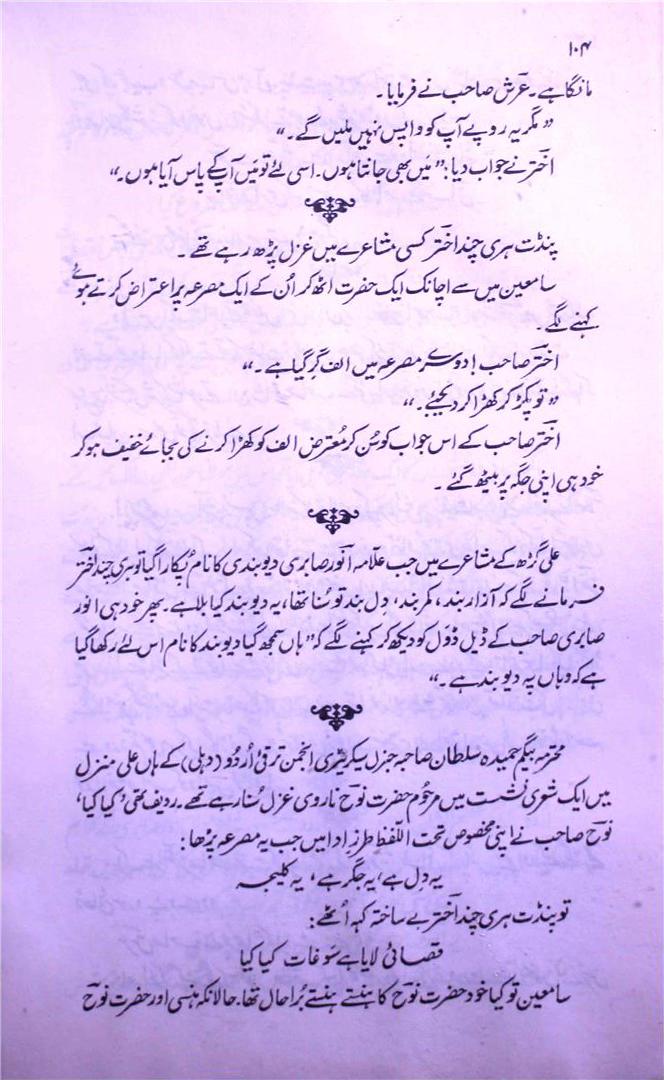 ۱۰۴
مانگا ہے۔ عرشؔ صاحب نے فرمایا۔
”مگر یہ روپے آپ کو واپس نہیں ملیں گے۔“
اخترؔ نے جواب دیا: ”میں بھی جانتا ہوں۔ اسی لئے تو میں آپ کے پاس آیا ہوں۔“
پنڈت ہری چند اخترؔ کسی مشاعرے میں غزل پڑھ رہے تھے۔
سامعین میں سے اچانک ایک حضرت اٹھ کر اُن کے ایک مصرعہ پر اعتراض کرتے ہوئے
کہنے لگے۔
اخترؔ صاحب! دوسرے مصرعہ میں الف گر گیا ہے۔“
”تو پکڑ کر کھڑا کر دیجئے۔“
اخترؔ صاحب کے اس جواب کو سُن کر مُعترض الف کو کھڑا کرنے کی بجائے خفیف ہو کر
خود ہی اپنی جگہ پر بیٹھ گئے۔
علی گڑھ کے مشاعرے میں جب علاّمہ انورؔ صابری دیوبندی کا نام پُکارا گیا تو ہری چند اخترؔ
فرمانے لگے کہ آزار بند، کمر بند، دِل بند تو سُنا تھا، یہ دیوبند کیا بلا ہے۔ پھر خود ہی انورؔ
صابری صاحب کے ڈیل ڈوَل کو دیکھ کر کہنے لگے کہ ”ہاں سمجھ گیا دیوبند کا نام اس لئے رکھا گیا
ہے کہ وہاں یہ دیو بند ہے۔“
محترمہ بیگم حمیدہ سلطان صاحبہ جنرل سیکریٹری انجمن ترقیٔ اُردُو (دہلی) کے ہاں علی منزل
میں ایک شعری نشست میں مرحُوم حضرت نوحؔ ناروی غزل سُنا رہے تھے۔ ردیف تھی ’کیا کیا‘
نوحؔ صاحب نے اپنی مخصوص تحت اللفظ طرزِ ادا میں جب یہ مصرعہ پڑھا:
یہ دِل ہے، یہ جگر ہے، یہ کلیجہ
تو پنڈت ہری چند اخترؔ بے ساختہ کہہ اُٹھے:
قصائی لایا ہے سَوغات کیا کیا
سامعین تو کیا خود حضرت نوحؔ کا ہنستے ہنستے بُرا حال تھا۔ حالانکہ ہنسی اور حضرت نوحؔ